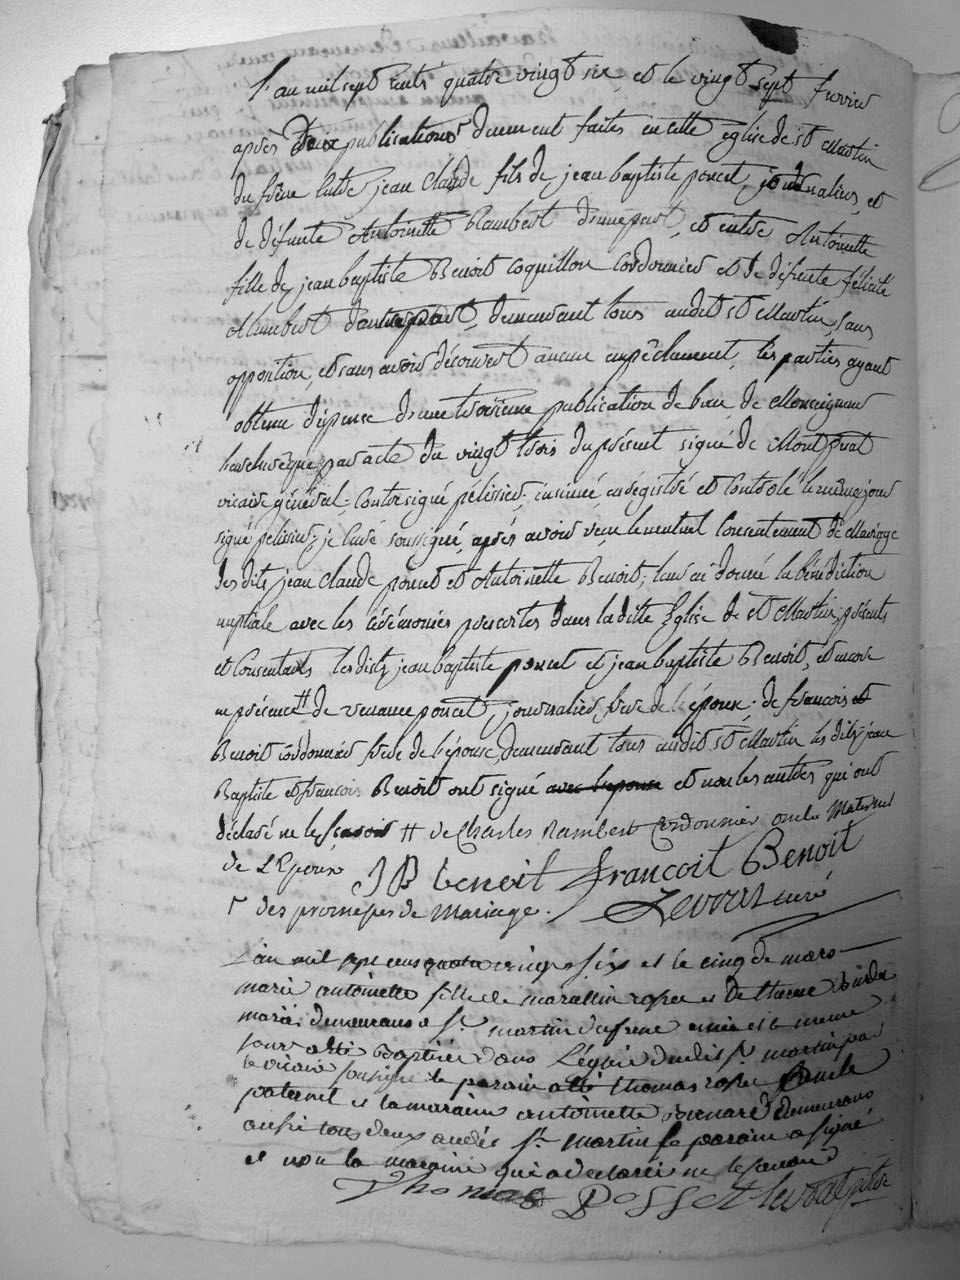 L'an mil sept cents quatre vingt six, et le vingt sept fevrier
après deux publications duement faites en cette église de st Martin
du frêne entre jean Claude fils de jean baptiste poncet, journaliers, et
de défunte Antoinette Rambert d'une part, et entre Antoinette
fille de jean baptiste Benoit coquillon Cordonnier et de défunte félicité
Humbert d'autre part, demeurant tous audit st Martin, sans
opposition, et sans avoir découvert aucun empêchement, les parties ayant
obtenu dispense d'une troisième publication de ban de Monseigneur
l'archevêque par acte du vingt trois du présent signé de Montjouat
vicaire général. Contresigné pélissier, insinué enregistré et Controlé le même jour
signé pelissier; je curé soussigné, après avoir reçu le mutuel Consentement de Mariage
des dits jean Claude poncet et Antoinette Benoit, leur ai donné la bénédiction
nuptiale avec les cérémonies prescrites dans la ditte Eglise de st Martin, présents
et Consentants les dits jean baptiste poncet et jean baptiste Benoit, et encore
en présence # de venance poncet, journalier, frere de l'époux, de francois
Benoit cordonnier frere de l'épouse, demeurant tous audit st Martin les dits jean
Baptiste et francois Benoit ont signé avec l'épouse et non les autres qui ont
déclaré ne le sçavoir # de Charles Rambert Cordonnier oncle Maternel
de L'Epoux JB benoit francoit Benoit
r des promesses de Mariage. Levrat curé
L'an mil sept cens quatre vingt six et le cinq de mars
marie antoinette fille de rosset et de
mariés demeurans a st martin du frene née est le meme
jour a été baptisée dans l'église dudit st martin par
le vicaire soussigné le parain a été thomas rosset oncle
paternel et la maraine antoinette demeurans
aussi tous deux audit st martin le parain a signé
et non la maraine qui a declaré ne le savoir
Thomas Rosset levrat ptre